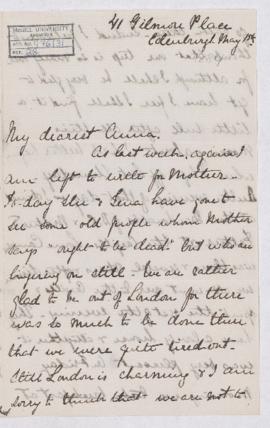 McGILL UNIVERSITY
ARCHIVES
ACC. NO.
REF. 28
41 Gilmore Place
Edinburgh May 18th
My dearest Anna.
As last week, again I
am left to write for Mother -
To-day she & Eva have gone to
see some old people whom Mother
says "ought to be dead" but who are
lingering on still - We are rather
glad to be out of London for there
was so much to be done there
that we were quite tired out.
Still London is charming & I am
sorry to think that we are not to